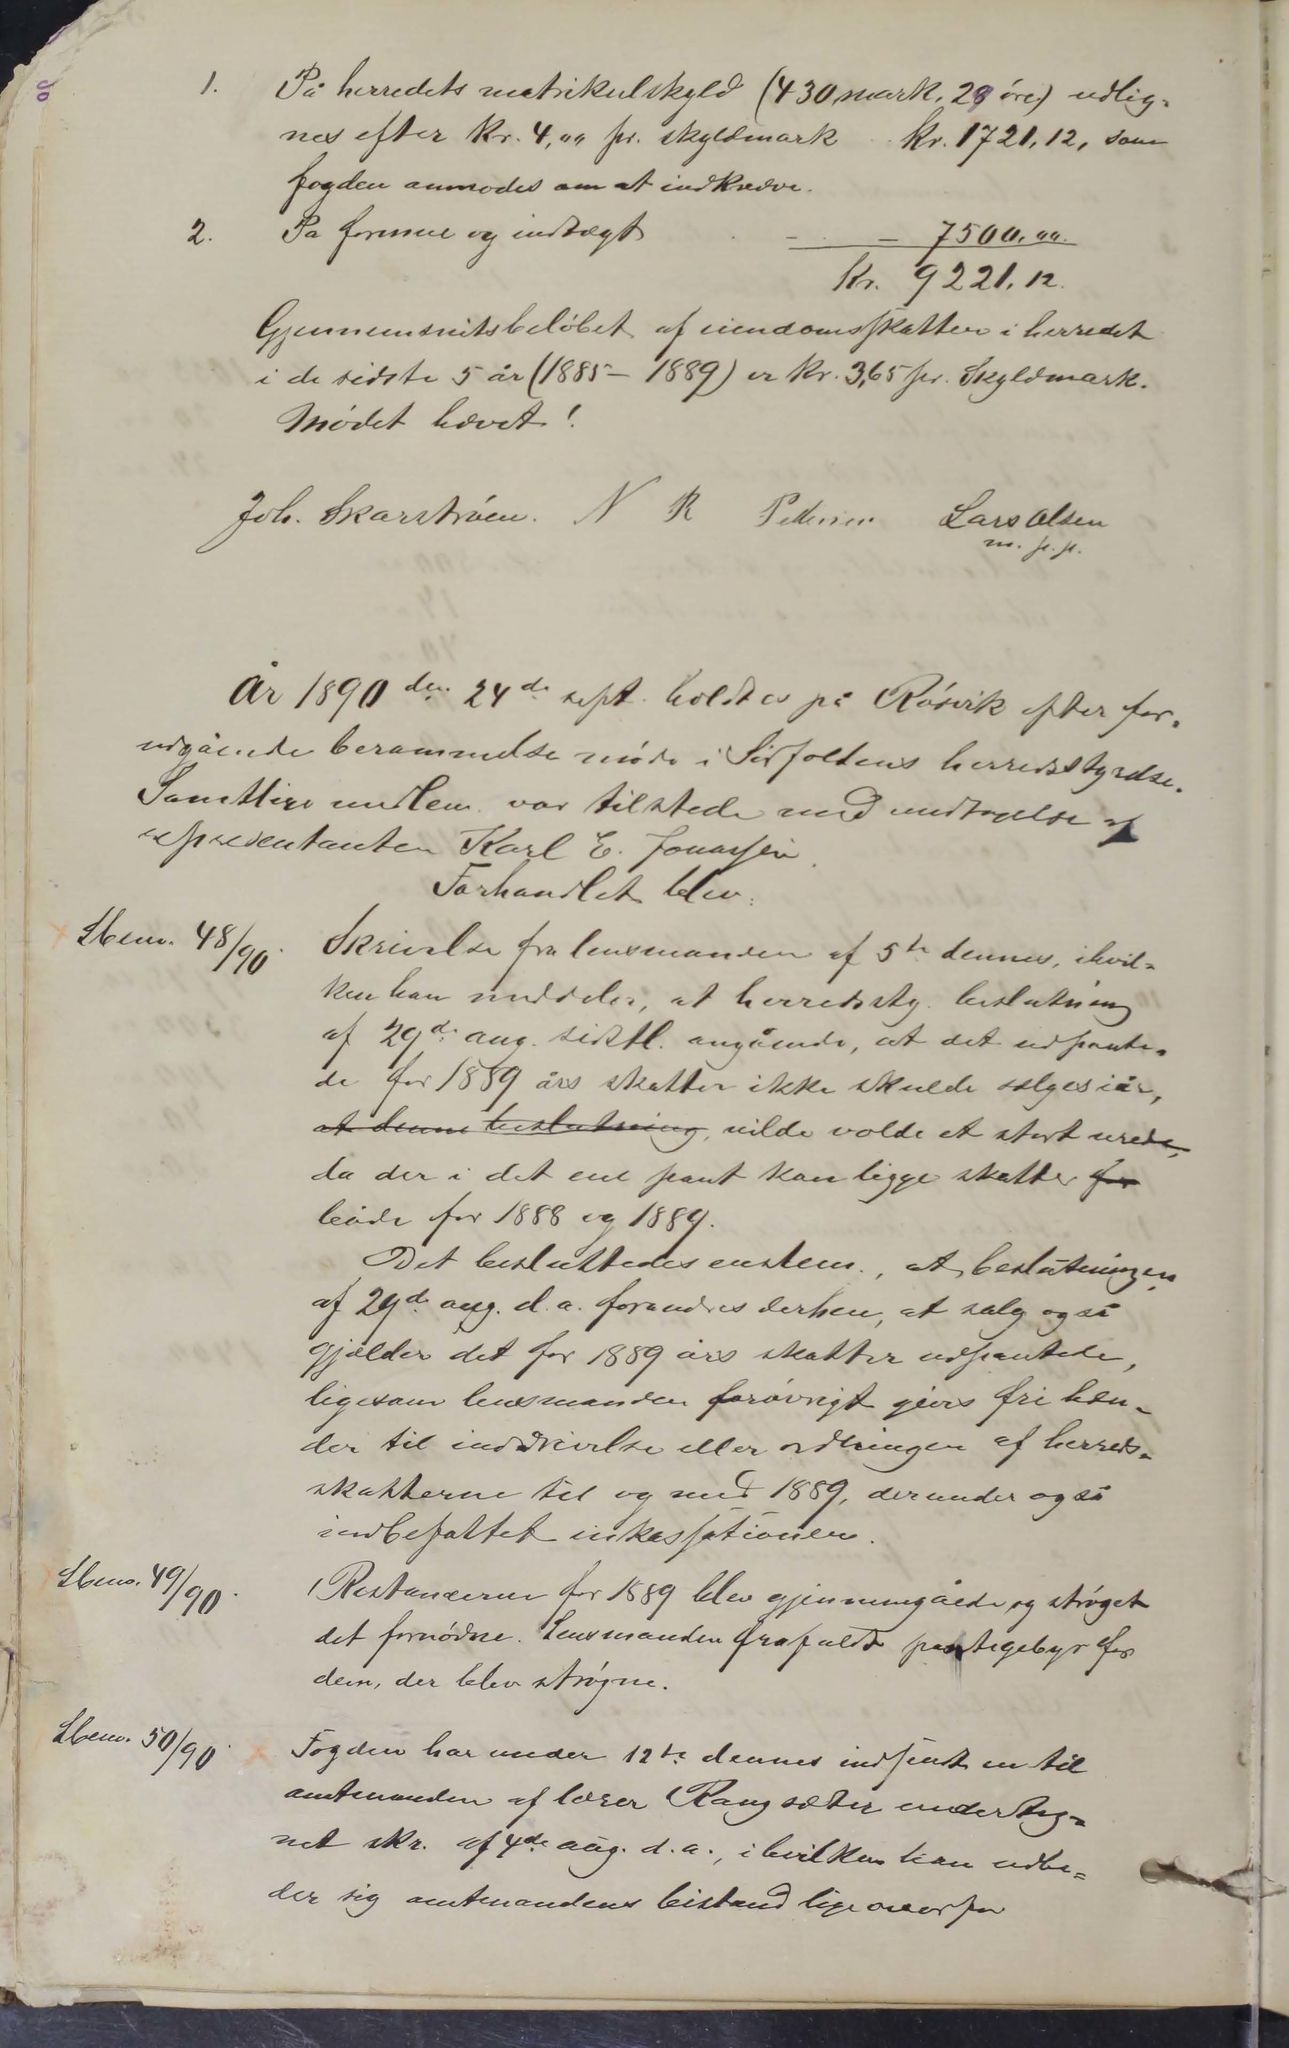 1. På herredets matrikulskyld (430 mark, 28 öre) udlig-
nes efter Kr. 4,00 pr. skyldmark Kr. 1721,12, som
fogden anmodes om at indkræve.
2. Pa formue og indtægt - - 7500,00.
Kr. 9221,12.
Gjennemsnitsbelöbet af eiendomsskatten i herredet
i de sidste 5 år (1885 - 1889) er Kr. 3,65 pr. Skyldmark.
Mödet hævet!
Joh. Skarström. N R Pedersen Lars Olsen
m. p. p.
År 1890 den 24de sept. holdtes på Rösvik efter for-
udgående berammelse möde i Sörfoldens herredsstyrelse.
Samtlige medlem. var tilstede med undtagelse af
repræsentanten Karl E. Jonassen.
Forhandlet blev:
48/90. Skrivelse fra lensmanden af 5te dennes, i hvil-
ken han meddeler, at herredssty. beslutning
af 29de aug. sidstl. angående, at det udpante-
de for 1889 års skatter ikke skulde sælges iår,
at denne beslutning, vilde volde et stort urede,
da der i det ene pant kan ligge skatter for
både for 1888 og 1889.
Det besluttedes enstem., at beslutningen
af 29de aug. d. a. forandres derhen, at salg også
gjælder det for 1889 års skatter udpantede,
ligesom lensmanden forövrigt gives fri hæn-
der til inddrivelse eller ordningen af herreds-
skatterne til og med 1889, derunder også
indbefattet inkassationen.
49/90. Restancerne for 1889 blev gjennemgåede og ströget
det fornödne. Lensmanden frafaldt pantegebyr for
dem, der blev strögne.
50/90. Fogden har under 12te dennes indsendt en til
amtmanden af lærer Rangsæter underteg-
net skr. af 4de aug. d. a., i hvilken han udbe-
der sig amtmandens bistand ligeoverfor